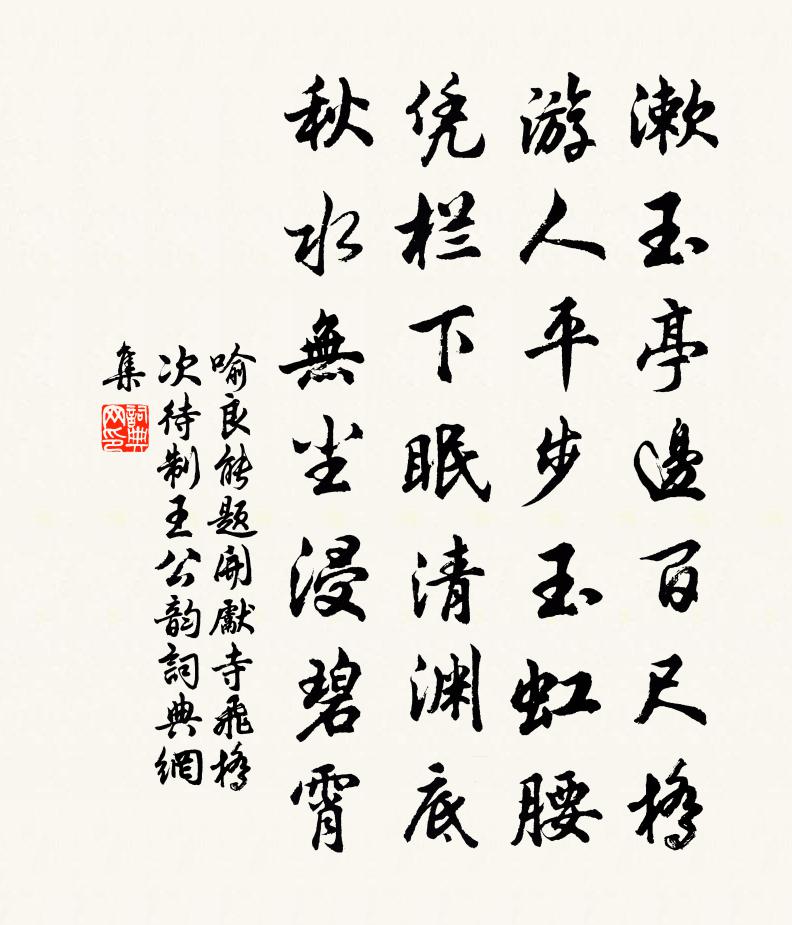 漱玉亭邊百尺橋
游人平步玉虹腰
凭栏下眠清渊底
秋水無尘浸碧霄
喻良能题開獻寺飛橋
次待制王公韵詞典網
集
詞典网印